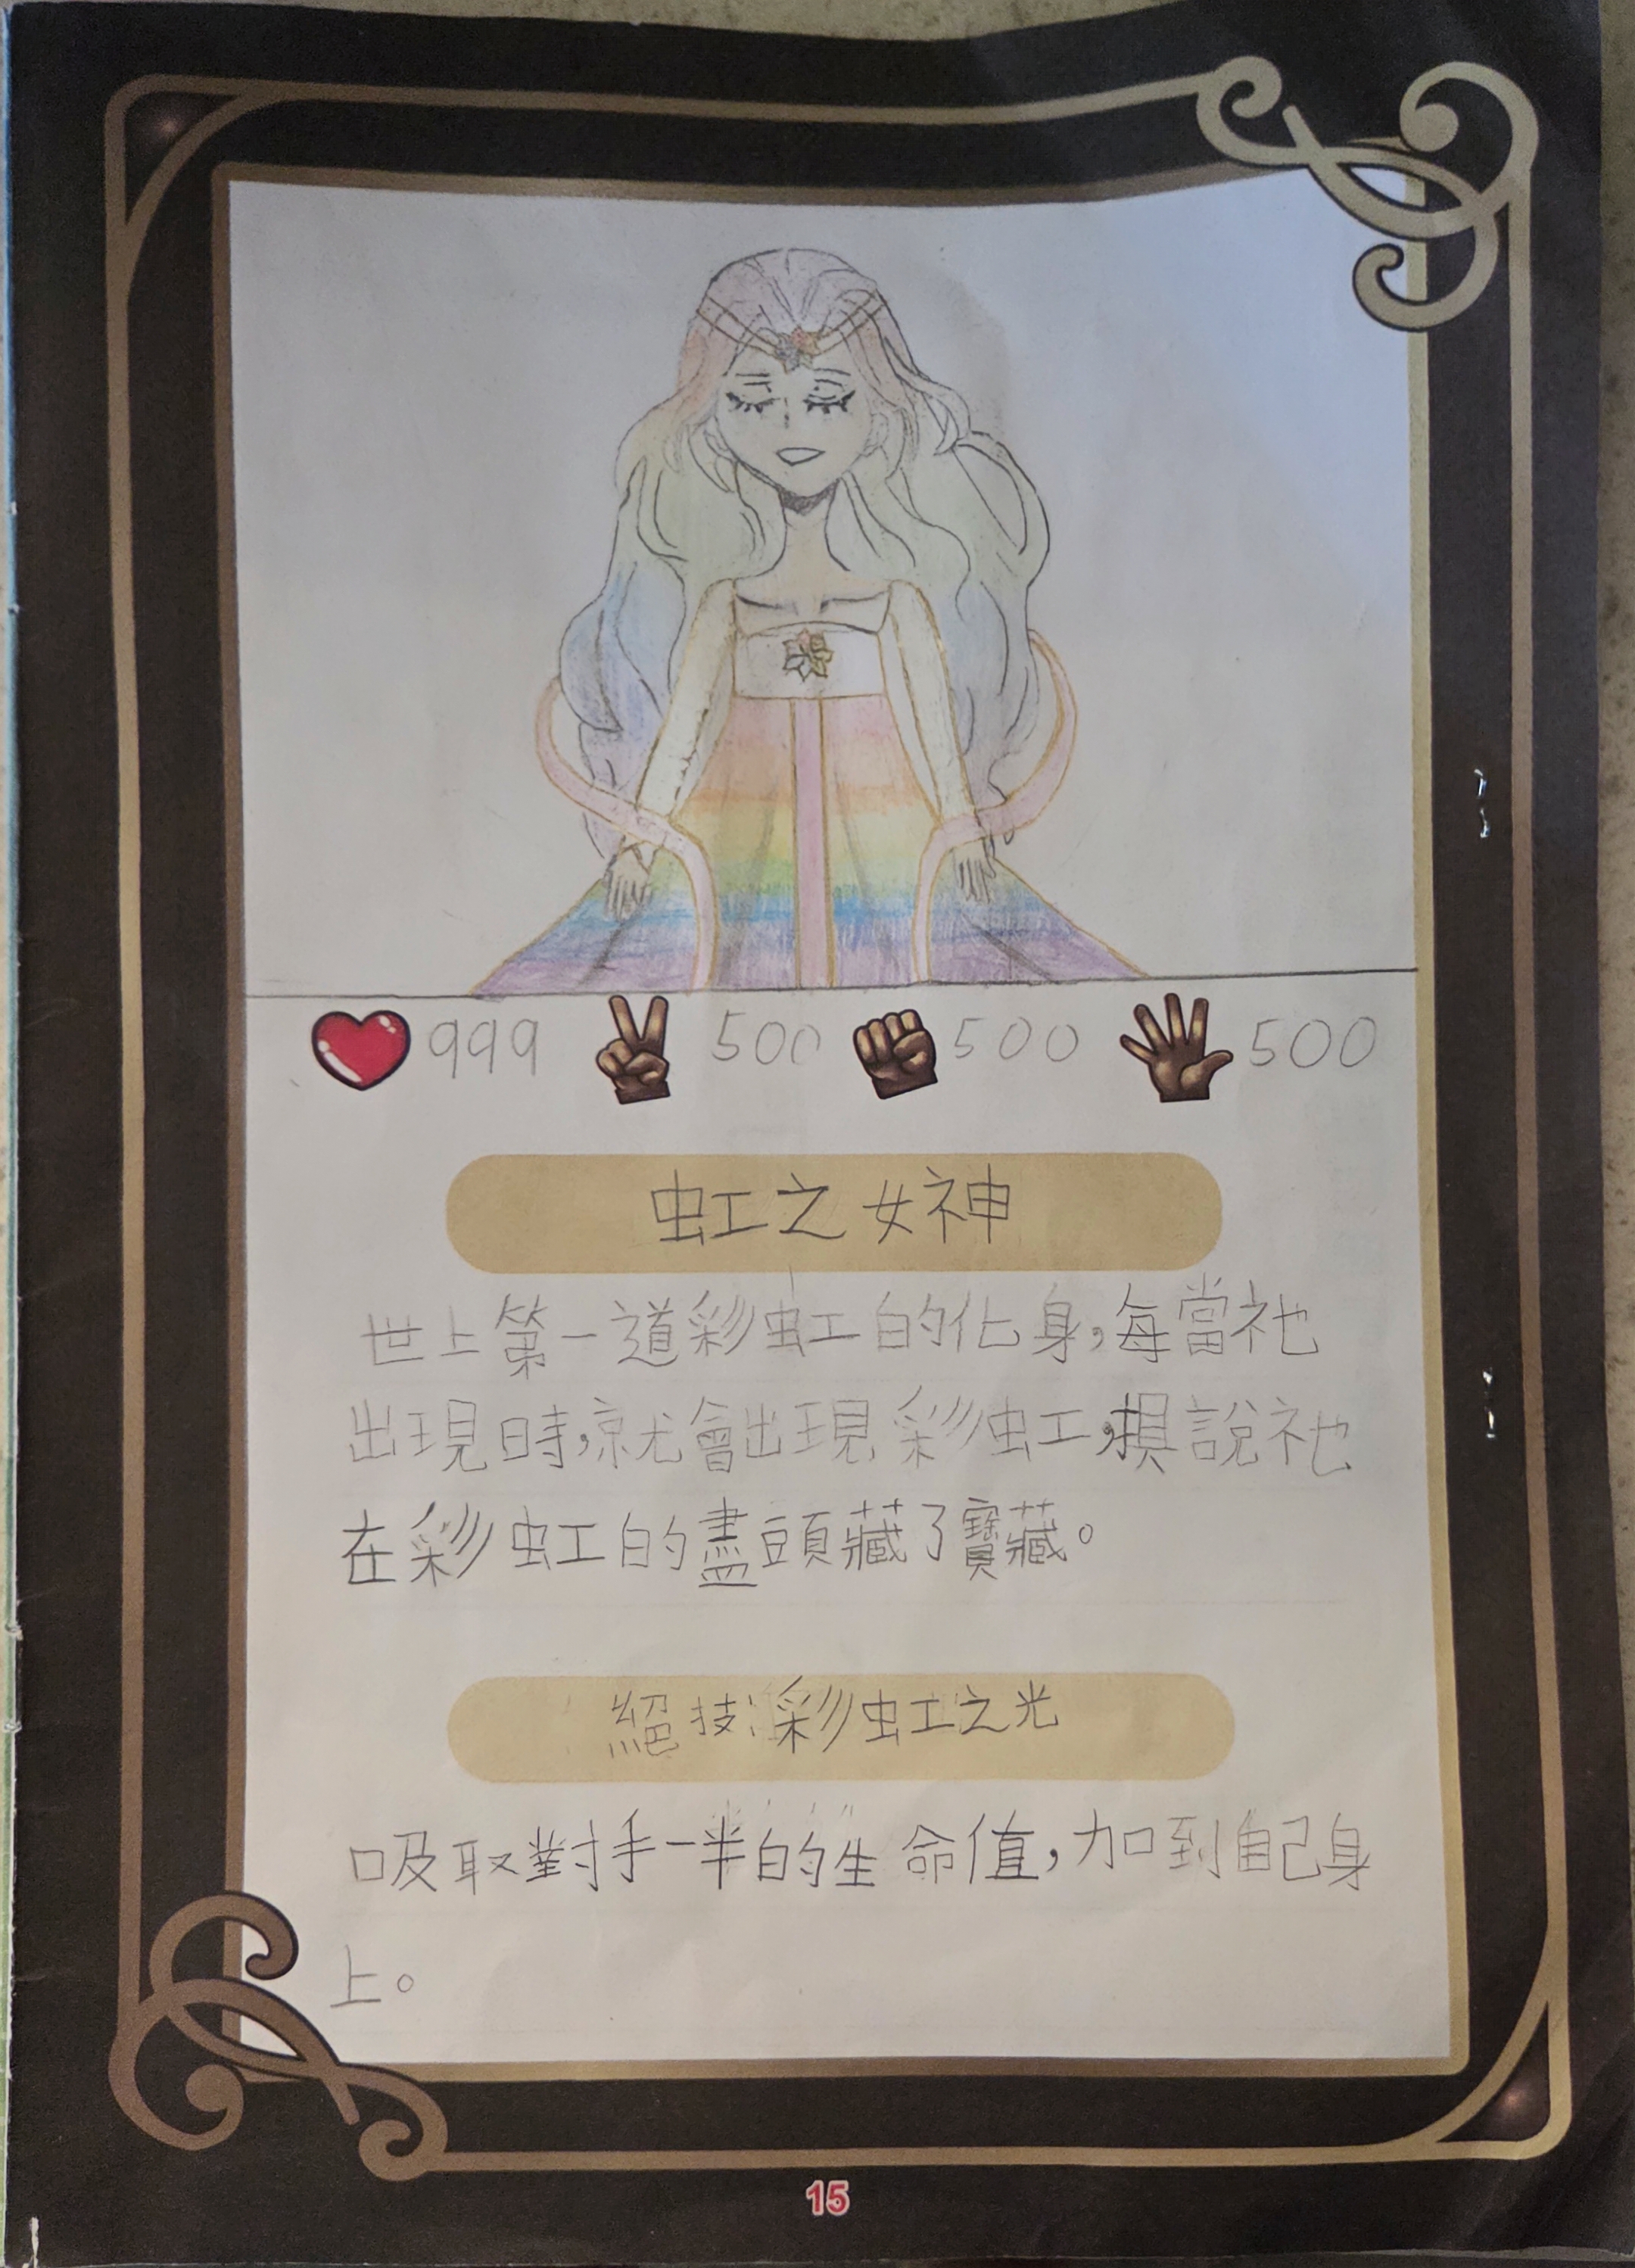 999 500 500 500
虹之女神
世上第一道彩虹的化身,每當祂
出現時,就會出現彩虹,損說祂
在彩虹的盡頭藏了寶藏。
絕技:彩虹之光
吸取對手一半的生命值,加到自己身
上。
15